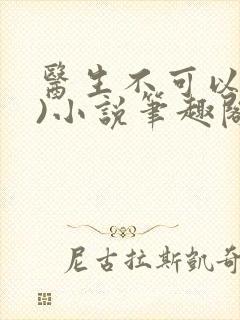 醫生不可以
)小說筆趣閣
尼古拉斯凱奇